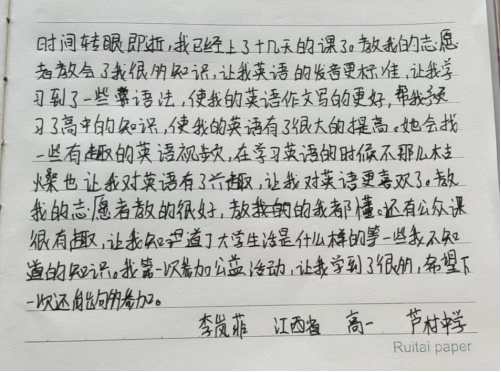 时间转眼即逝,我已经上了十几天的课了。教我的志愿
者教会了我很多知识,让我英语的发音更标准,让我学
习到了一些语法,使我的英语作文写的更好,帮我预
习了高中的知识,使我的英语有了很大的提高。她会找
一些有趣的英语视频,在学习英语的时候不那么枯
燥也让我对英语有了兴趣,让我对英语更喜欢了。教
我的志愿者教的很好,教的我都懂。还有公众课
很有趣,让我知道了大学生活是什么样的等一些我不知
道的知识。我第一次参加公益活动,让我学到了很多,希望下
一次还能参加。
李岚菲 江西省 高一 芦村中学
Ruitai paper